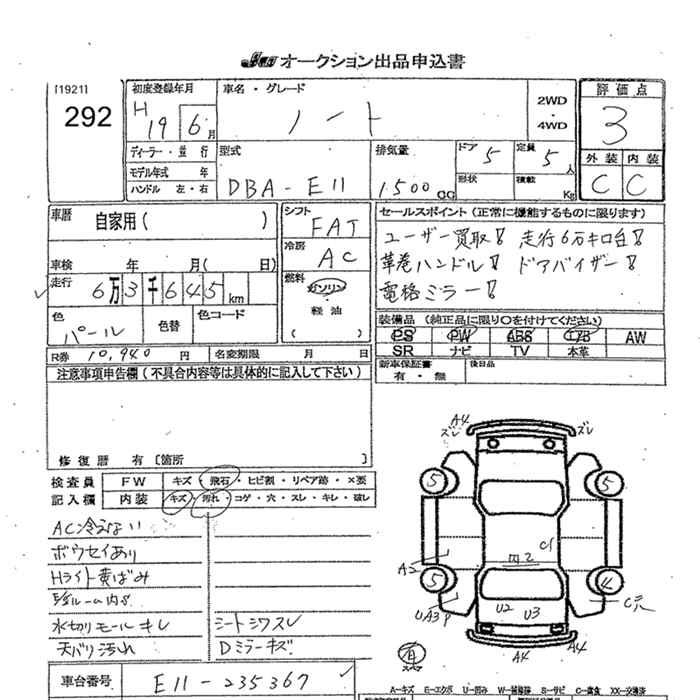 オークション出品申込書
[1921]
292
初度登録年月
H
19 6月
車名・グレード
ノート
2WD
・
4WD
評価点
3
ディーラー・並行
モデル年式 年
ハンドル 左・右
型式
DBA-E11
排気量
1500cc
ドア 5
形状
定員 5人
積載 Kg
外装 内装
C C
車歴
自家用( )
車検 年 月( 日)
走行
6万3千645km
色
パール
色替
色コード
シフト
FAT
冷房
AC
燃料
ガソリン
・
軽油
( )
セールスポイント(正常に機能するものに限ります)
ユーザー買取! 走行6万キロ台!
革巻ハンドル! ドアバイザー!
電格ミラー!
装備品(純正品に限り○を付けてください)
PS PW ABS エアB AW
SR ナビ TV 本革
新車保証書
有・無
後日品
R券 10,940 円
名変期限 月 日
注意事項申告欄(不具合内容等は具体的に記入して下さい)
修復歴 有 〔箇所 〕
検査員 FW キズ・飛石・ヒビ割・リペア跡・×要
記入欄 内装 キズ・汚れ・コゲ・穴・スレ・キレ・破レ
AC冷えない
ボウセイあり
Hライト黄ばみ
水切リモールキレ
天バリ汚れ
シートシワスレ
Dミラーキズ
車台番号 E11-235367
A4
ズレ
ズレ
5
5
C1
A2
5
4
UA3P
U2
U3
A4
A4
A-キズ E-エクボ U-凹み W-補修跡 S-サビ C-腐食 XX-交換済